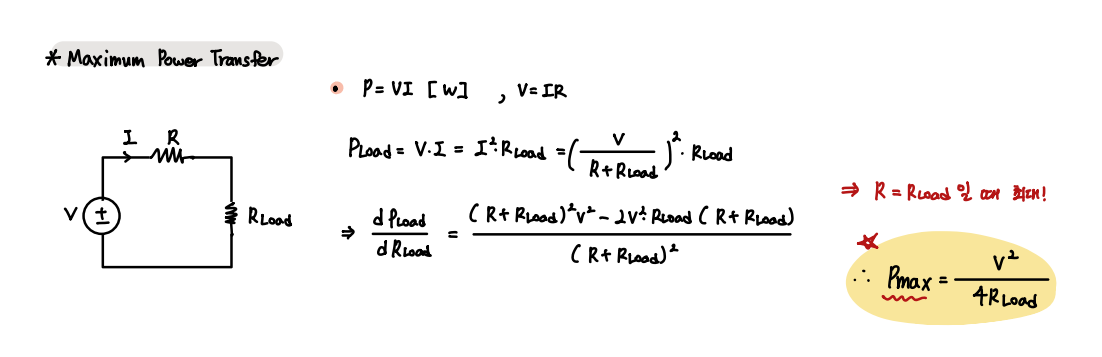 * Maximum Power Transfer
• P = VI [W] , V = IR
I R
V
R_Load
P_Load = V·I = I²·R_Load = (V / (R + R_Load))² · R_Load
⇒ dP_Load / dR_Load = ((R + R_Load)²V² - 2V²R_Load (R + R_Load)) / (R + R_Load)²
⇒ R = R_Load 일 때 최대!
☆ ∴ Pmax = V² / 4R_Load